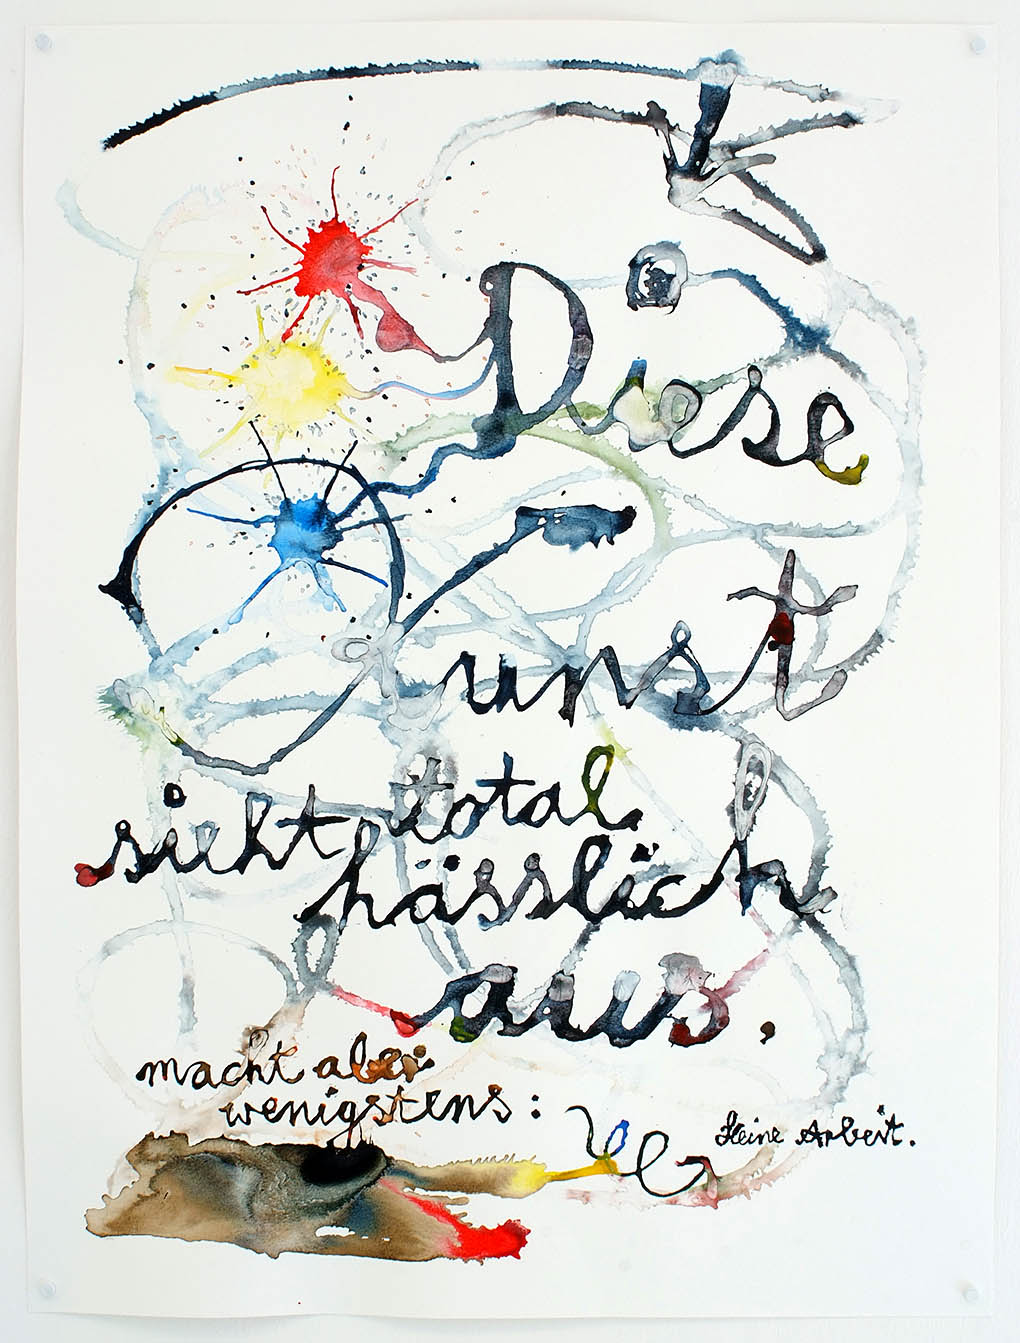 Diese
Kunst
sieht total
hässlich
aus,
macht aber
wenigstens:
Keine Arbeit.